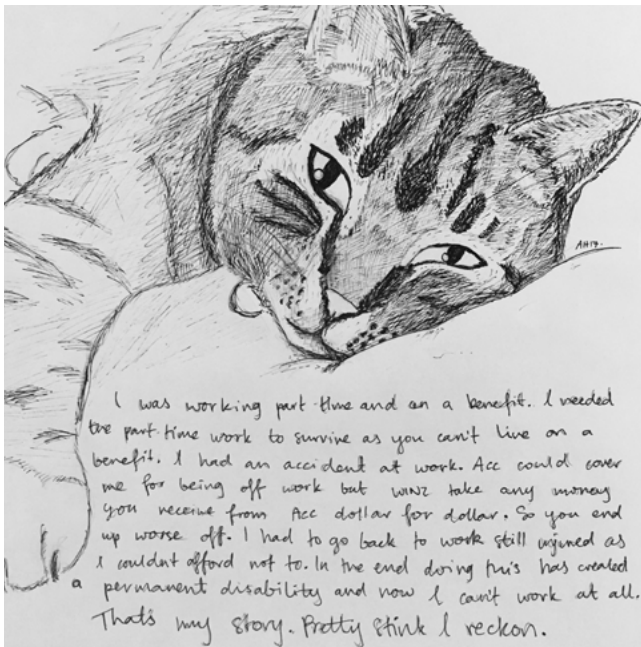 AH17.
I was working part-time and on a benefit. I needed
the part-time work to survive as you can't live on a
benefit. I had an accident at work. Acc could cover
me for being off work but WINZ take any money
you receive from Acc dollar for dollar. So you end
up worse off. I had to go back to work still injured as
I couldnt afford not to. In the end doing this has created
a permanent disability and now I can't work at all.
That's my story. Pretty stink I reckon.